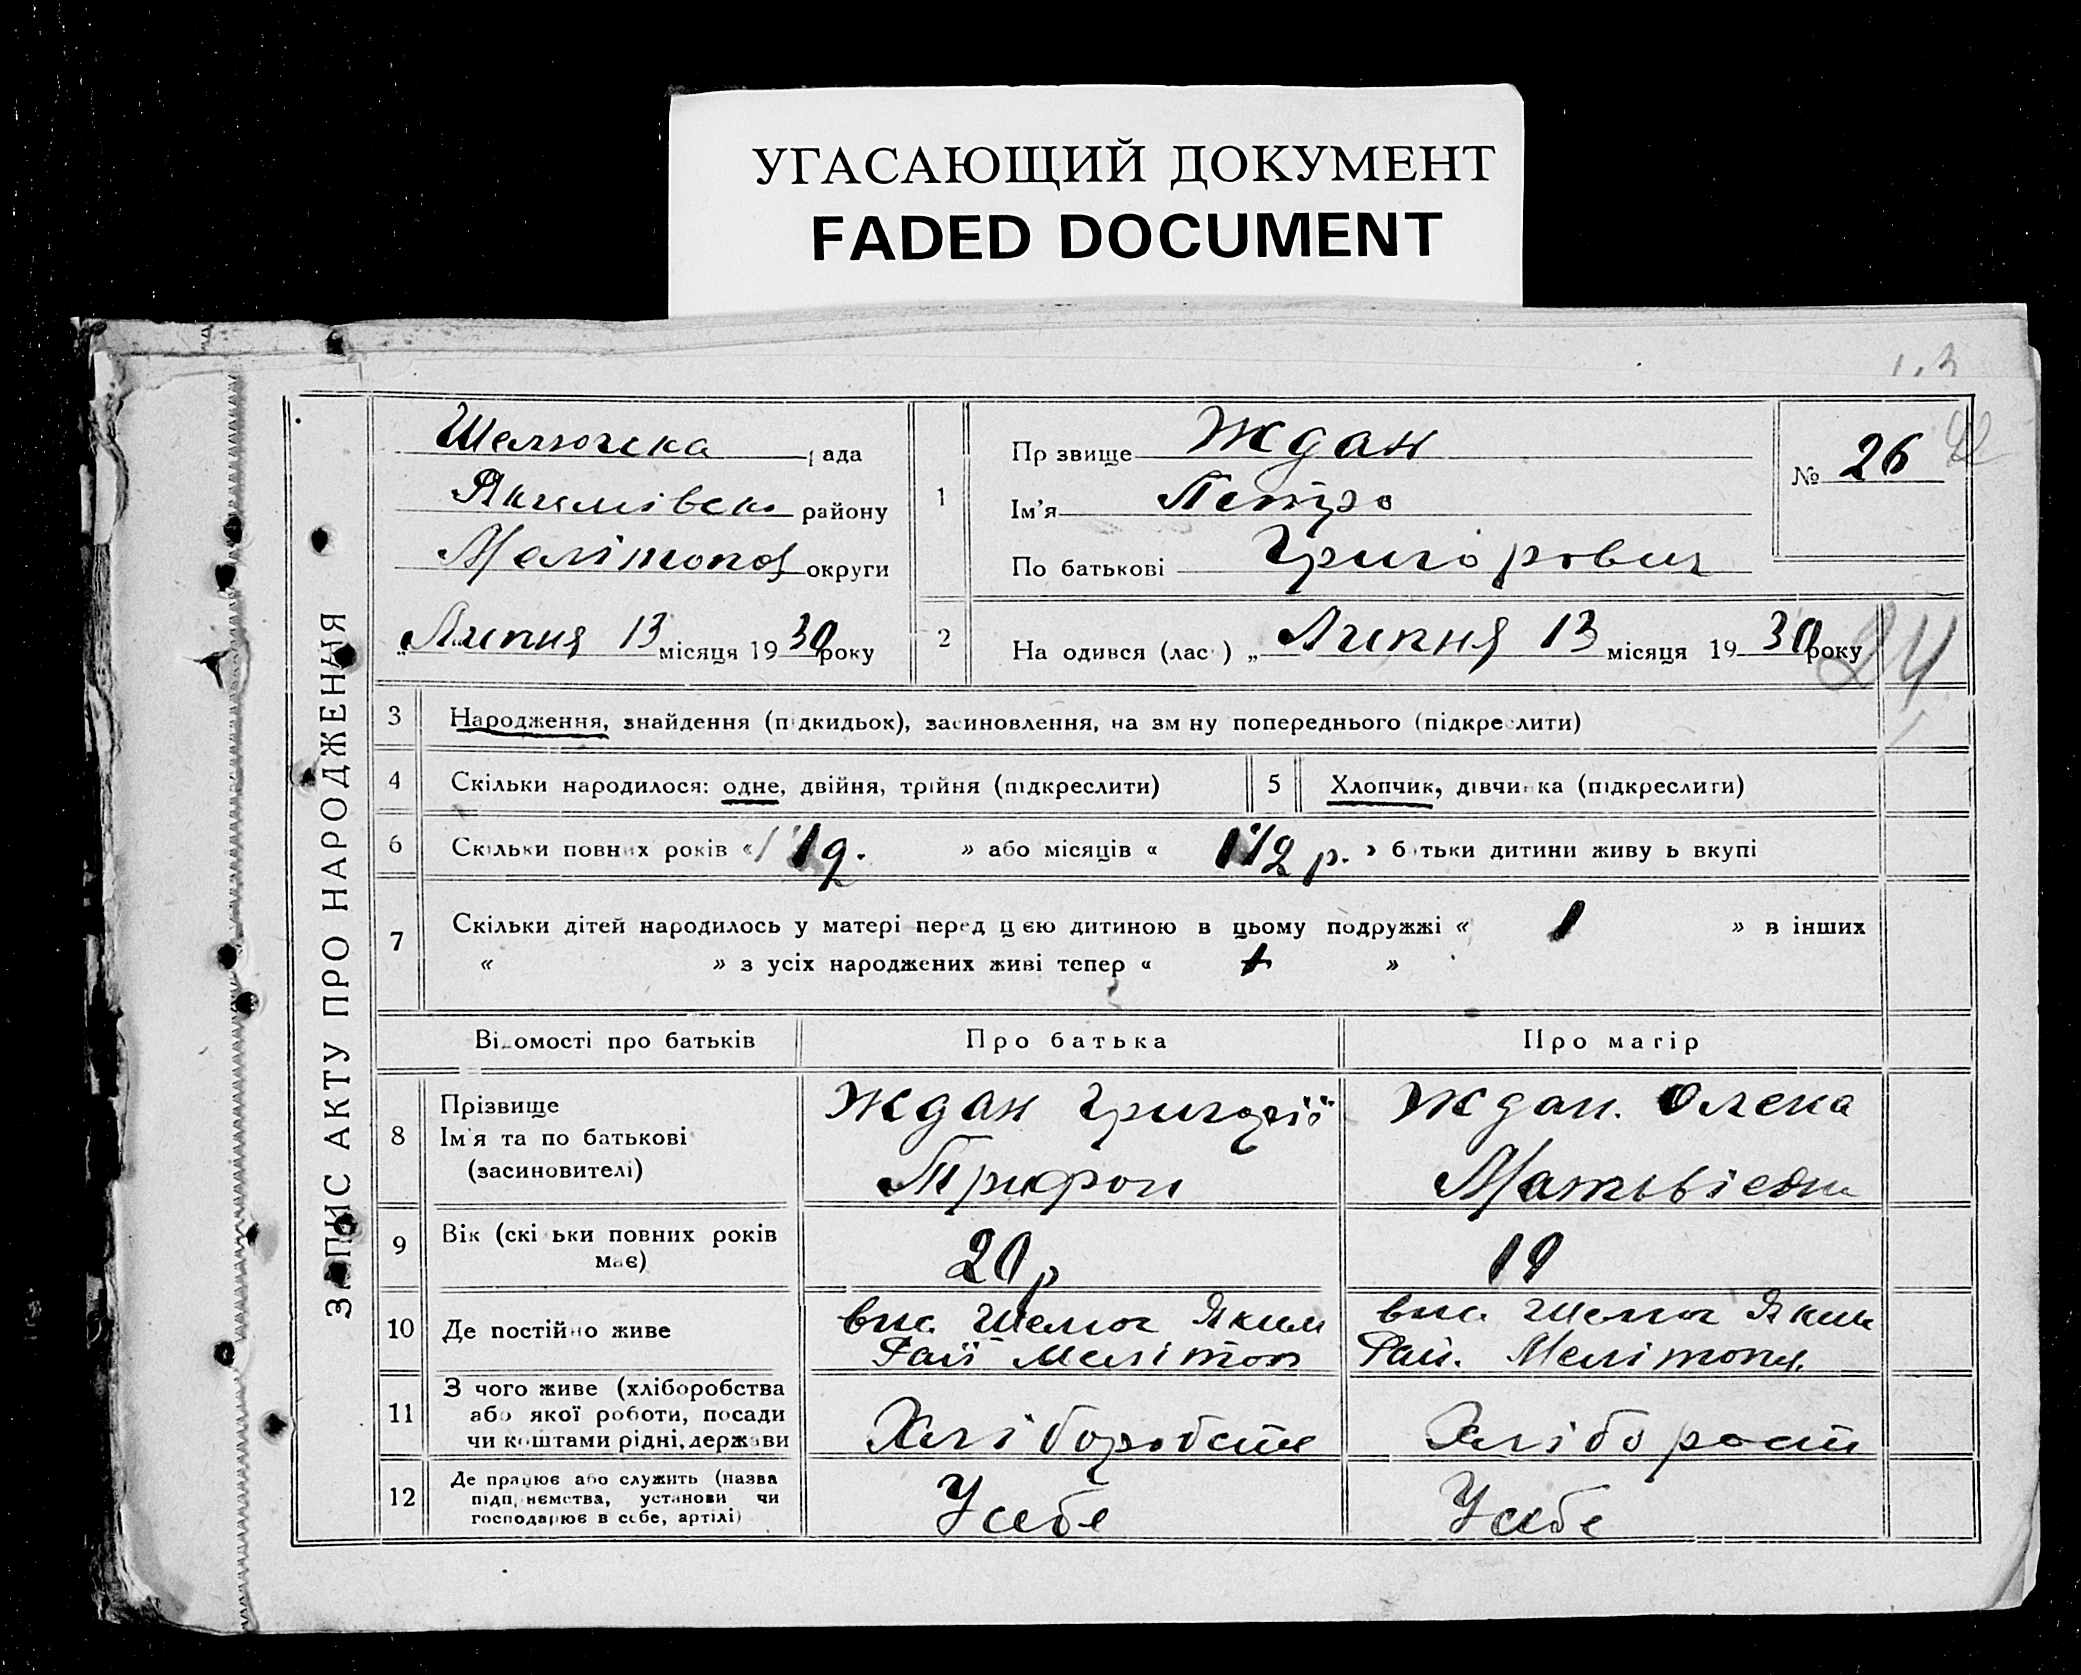 УГАСАЮЩИЙ ДОКУМЕНТ
FADED DOCUMENT
ЗАПИС АКТУ ПРО НАРОДЖЕННЯ
Шелюгска рада
Якимівськ району
Мелітопол округи
„Липня 13 місяця 1930 року
1
Прізвище Ждан
Ім'я Петро
По батькові Григорович
№ 26
2 Народився (лась) „Липня 13 місяця 1930 року
24
3 Народження, знайдення (підкидьок), засиновлення, на зміну попереднього (підкреслити)
4 Скільки народилося: одне, двійня, трійня (підкреслити)
5 Хлопчик, дівчинка (підкреслити)
6 Скільки повних років « » або місяців « 1 1/2 р. » батьки дитини живуть вкупі
7 Скільки дітей народилось у матері перед цією дитиною в цьому подружжі « 1 » в інших
« » з усіх народжених живі тепер « »
Відомості про батьків
Про батька
Про матір
8 Прізвище
Ім'я та по батькові
(засиновителі)
Ждан Григорій
Трифон
Ждан. Олена
Матьвієвн
9 Вік (скільки повних років
має)
20 р
19
10 Де постійно живе
вис. Шелюг Яким
Рай Мелітоп
вис. Шелюг Яким
Рай. Мелітопол.
11 З чого живе (хліборобства
або якої роботи, посади
чи коштами рідні, держави
Хліборобств
Хліборост
12 Де працює або служить (назва
підприємства, установи чи
господарює в себе, артілі)
Усебе
Усебе